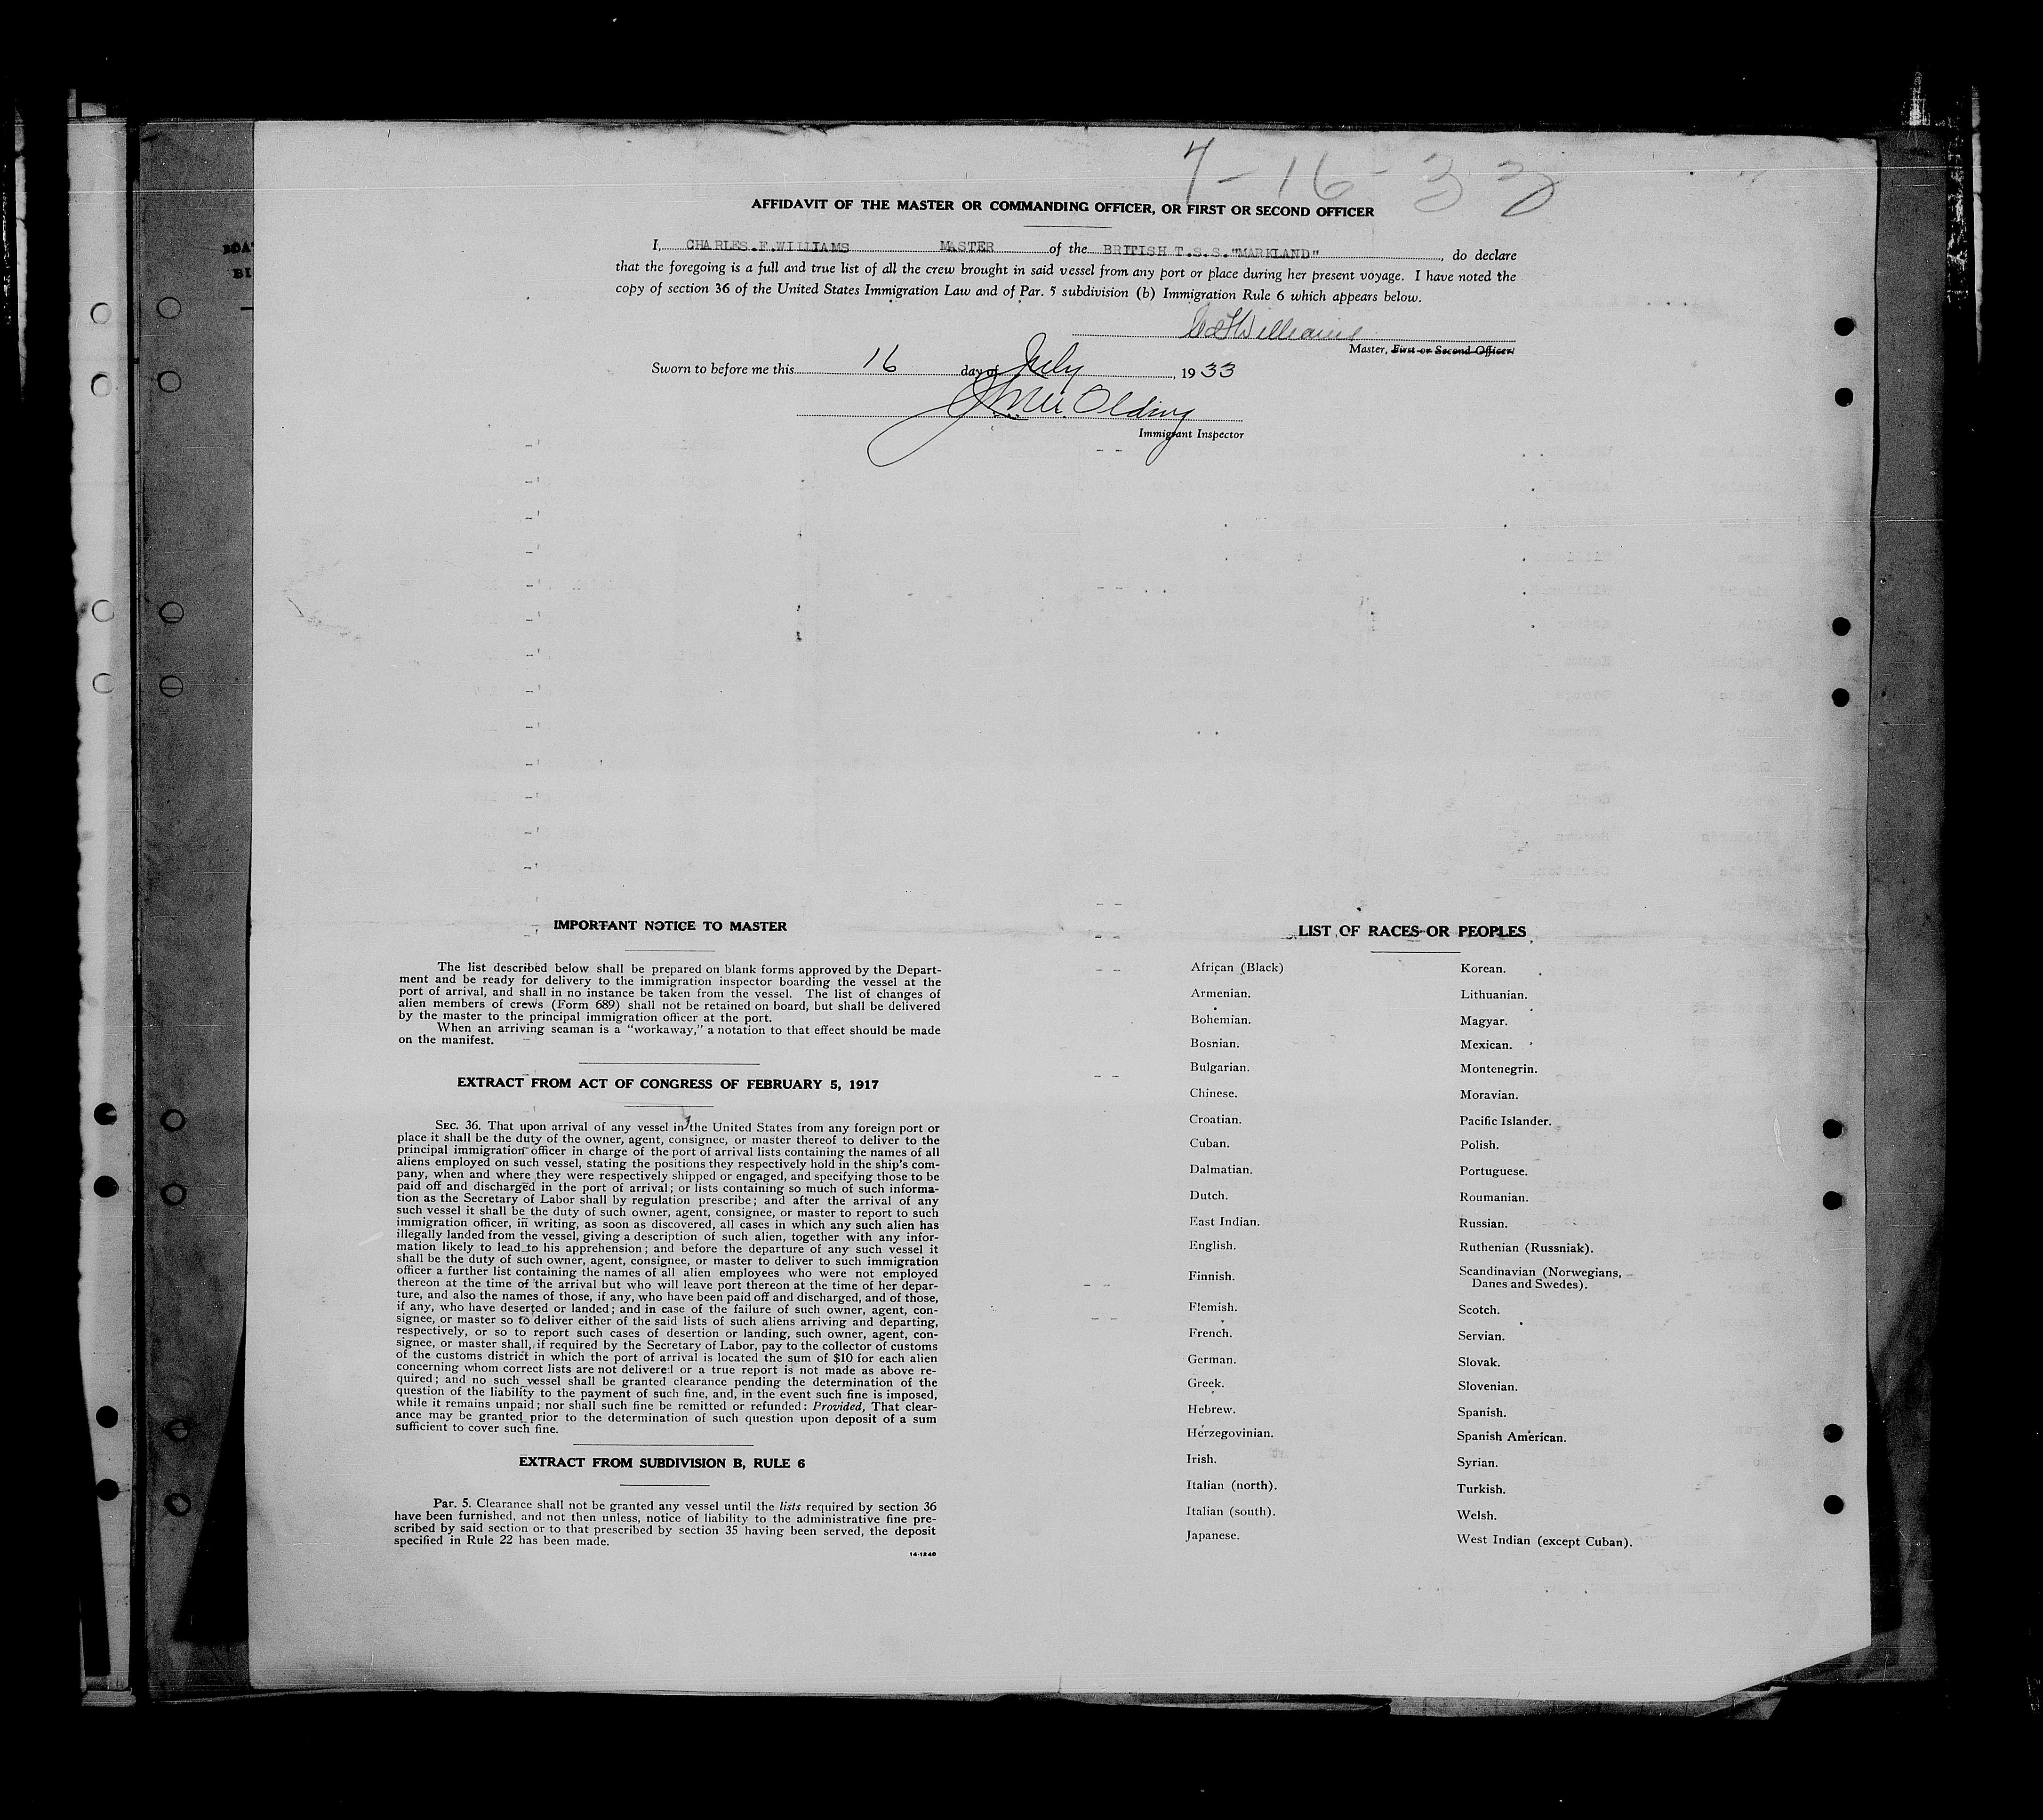 7-16-33
AFFIDAVIT OF THE MASTER OR COMMANDING OFFICER, OR FIRST OR SECOND OFFICER
I, CHARLES.F.WILLIAMS MASTER of the BRITISH T.S.S."MARKLAND" , do declare
that the foregoing is a full and true list of all the crew brought in said vessel from any port or place during her present voyage. I have noted the
copy of section 36 of the United States Immigration Law and of Par. 5 subdivision (b) Immigration Rule 6 which appears below.
Williams
Master, First or Second Officer.
Sworn to before me this 16 day of July , 19 33
Olding
Immigrant Inspector
IMPORTANT NOTICE TO MASTER
The list described below shall be prepared on blank forms approved by the Depart-
ment and be ready for delivery to the immigration inspector boarding the vessel at the
port of arrival, and shall in no instance be taken from the vessel. The list of changes of
alien members of crews (Form 689) shall not be retained on board, but shall be delivered
by the master to the principal immigration officer at the port.
When an arriving seaman is a "workaway," a notation to that effect should be made
on the manifest.
EXTRACT FROM ACT OF CONGRESS OF FEBRUARY 5, 1917
SEC. 36. That upon arrival of any vessel in the United States from any foreign port or
place it shall be the duty of the owner, agent, consignee, or master thereof to deliver to the
principal immigration officer in charge of the port of arrival lists containing the names of all
aliens employed on such vessel, stating the positions they respectively hold in the ship's com-
pany, when and where they were respectively shipped or engaged, and specifying those to be
paid off and discharged in the port of arrival; or lists containing so much of such informa-
tion as the Secretary of Labor shall by regulation prescribe; and after the arrival of any
such vessel it shall be the duty of such owner, agent, consignee, or master to report to such
immigration officer, in writing, as soon as discovered, all cases in which any such alien has
illegally landed from the vessel, giving a description of such alien, together with any infor-
mation likely to lead to his apprehension; and before the departure of any such vessel it
shall be the duty of such owner, agent, consignee, or master to deliver to such immigration
officer a further list containing the names of all alien employees who were not employed
thereon at the time of the arrival but who will leave port thereon at the time of her depar-
ture, and also the names of those, if any, who have been paid off and discharged, and of those,
if any, who have deserted or landed; and in case of the failure of such owner, agent, con-
signee, or master so to deliver either of the said lists of such aliens arriving and departing,
respectively, or so to report such cases of desertion or landing, such owner, agent, con-
signee, or master shall, if required by the Secretary of Labor, pay to the collector of customs
of the customs district in which the port of arrival is located the sum of $10 for each alien
concerning whom correct lists are not delivered or a true report is not made as above re-
quired; and no such vessel shall be granted clearance pending the determination of the
question of the liability to the payment of such fine, and, in the event such fine is imposed,
while it remains unpaid; nor shall such fine be remitted or refunded: Provided, That clear-
ance may be granted prior to the determination of such question upon deposit of a sum
sufficient to cover such fine.
EXTRACT FROM SUBDIVISION B, RULE 6
Par. 5. Clearance shall not be granted any vessel until the lists required by section 36
have been furnished, and not then unless, notice of liability to the administrative fine pre-
scribed by said section or to that prescribed by section 35 having been served, the deposit
specified in Rule 22 has been made.
14-1240
LIST OF RACES OR PEOPLES
African (Black)
Armenian.
Bohemian.
Bosnian.
Bulgarian.
Chinese.
Croatian.
Cuban.
Dalmatian.
Dutch.
East Indian.
English.
Finnish.
Flemish.
French.
German.
Greek.
Hebrew.
Herzegovinian.
Irish.
Italian (north).
Italian (south).
Japanese.
Korean.
Lithuanian.
Magyar.
Mexican.
Montenegrin.
Moravian.
Pacific Islander.
Polish.
Portuguese.
Roumanian.
Russian.
Ruthenian (Russniak).
Scandinavian (Norwegians,
Danes and Swedes).
Scotch.
Servian.
Slovak.
Slovenian.
Spanish.
Spanish American.
Syrian.
Turkish.
Welsh.
West Indian (except Cuban).